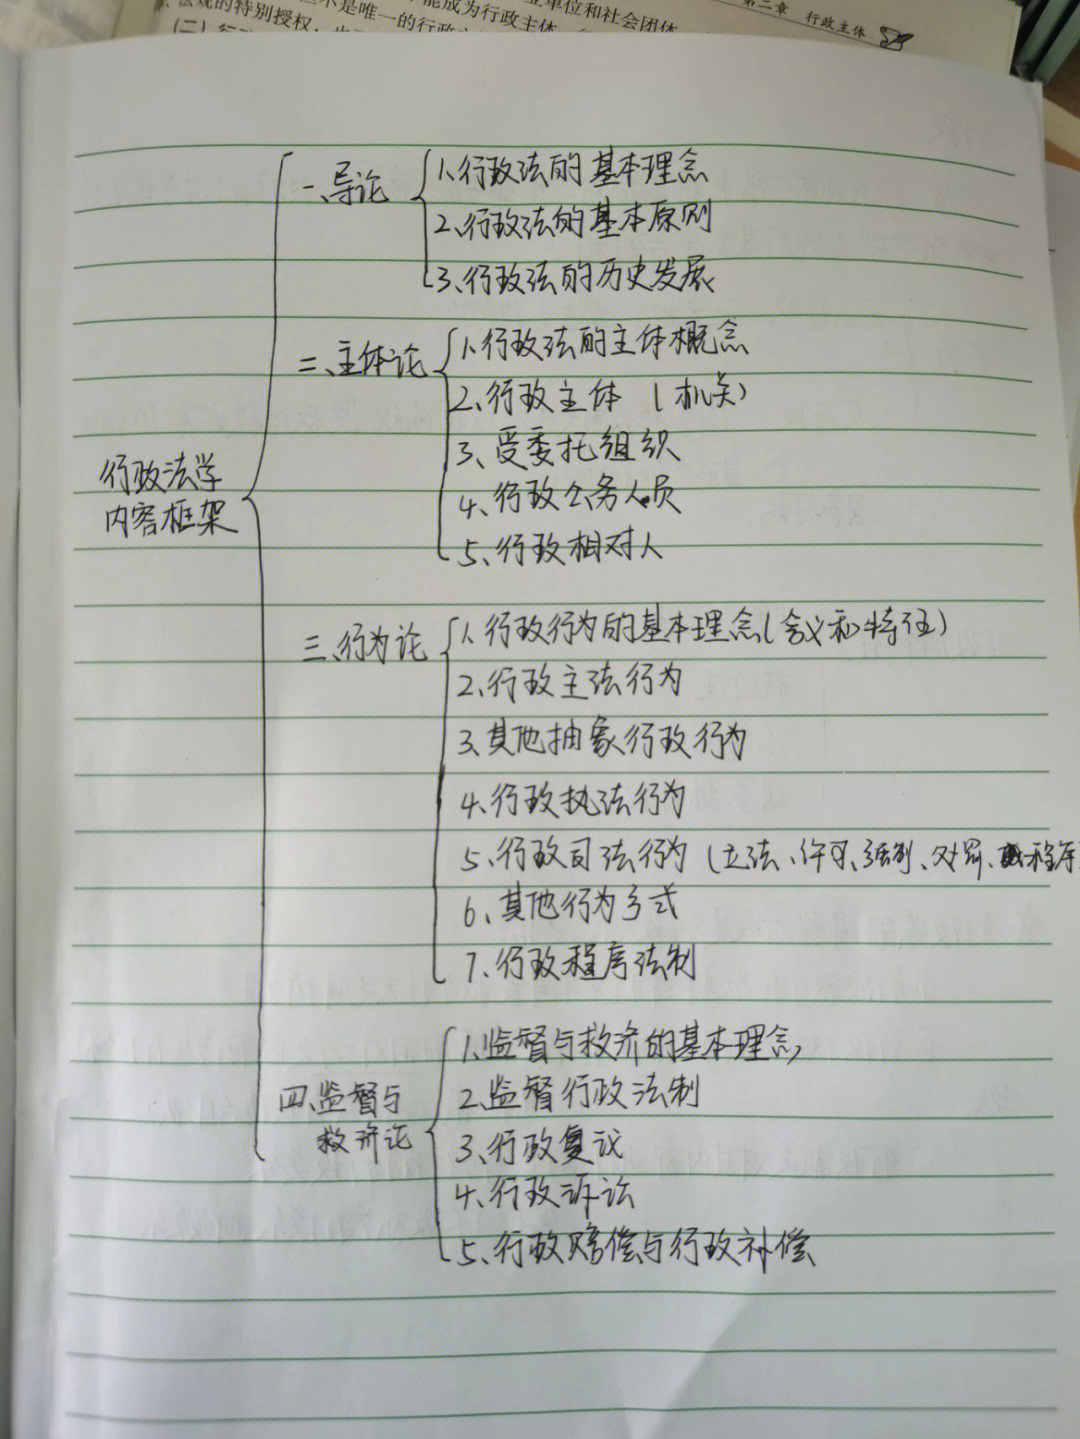 法规的特别授权,
不是唯一的行政
能成为行政主体
业单位和社会团体
第二章 行政主体
一、导论
1、行政法的基本理念
2、行政法的基本原则
3、行政法的历史发展
二、主体论
1、行政法的主体概念
2、行政主体(机关)
3、受委托组织
4、行政公务人员
5、行政相对人
行政法学
内容框架
三、行为论
1、行政行为的基本理念(含义和特征)
2、行政立法行为
3、其他抽象行政行为
4、行政执法行为
5、行政司法行为(立法、许可、强制、处罚、程序
6、其他行为方式
7、行政程序法制
四、监督与
救济论
1、监督与救济的基本理念
2、监督行政法制
3、行政复议
4、行政诉讼
5、行政赔偿与行政补偿